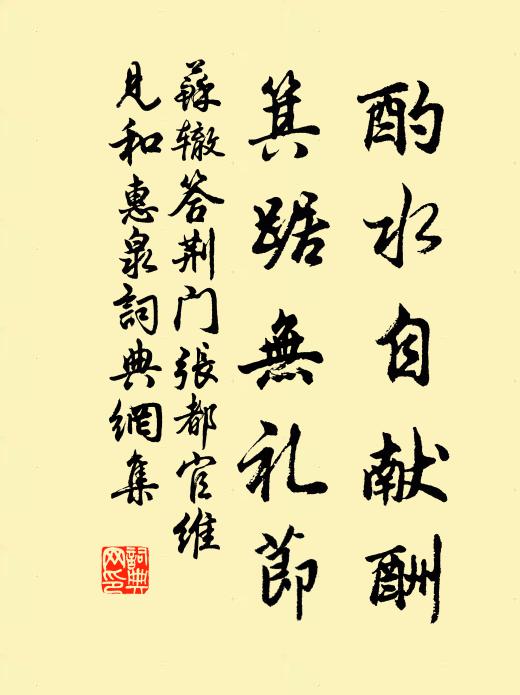 酌水自献酬
箕踞無礼節
蘇辙答荆门張都官维
見和惠泉詞典網集
詞典网印